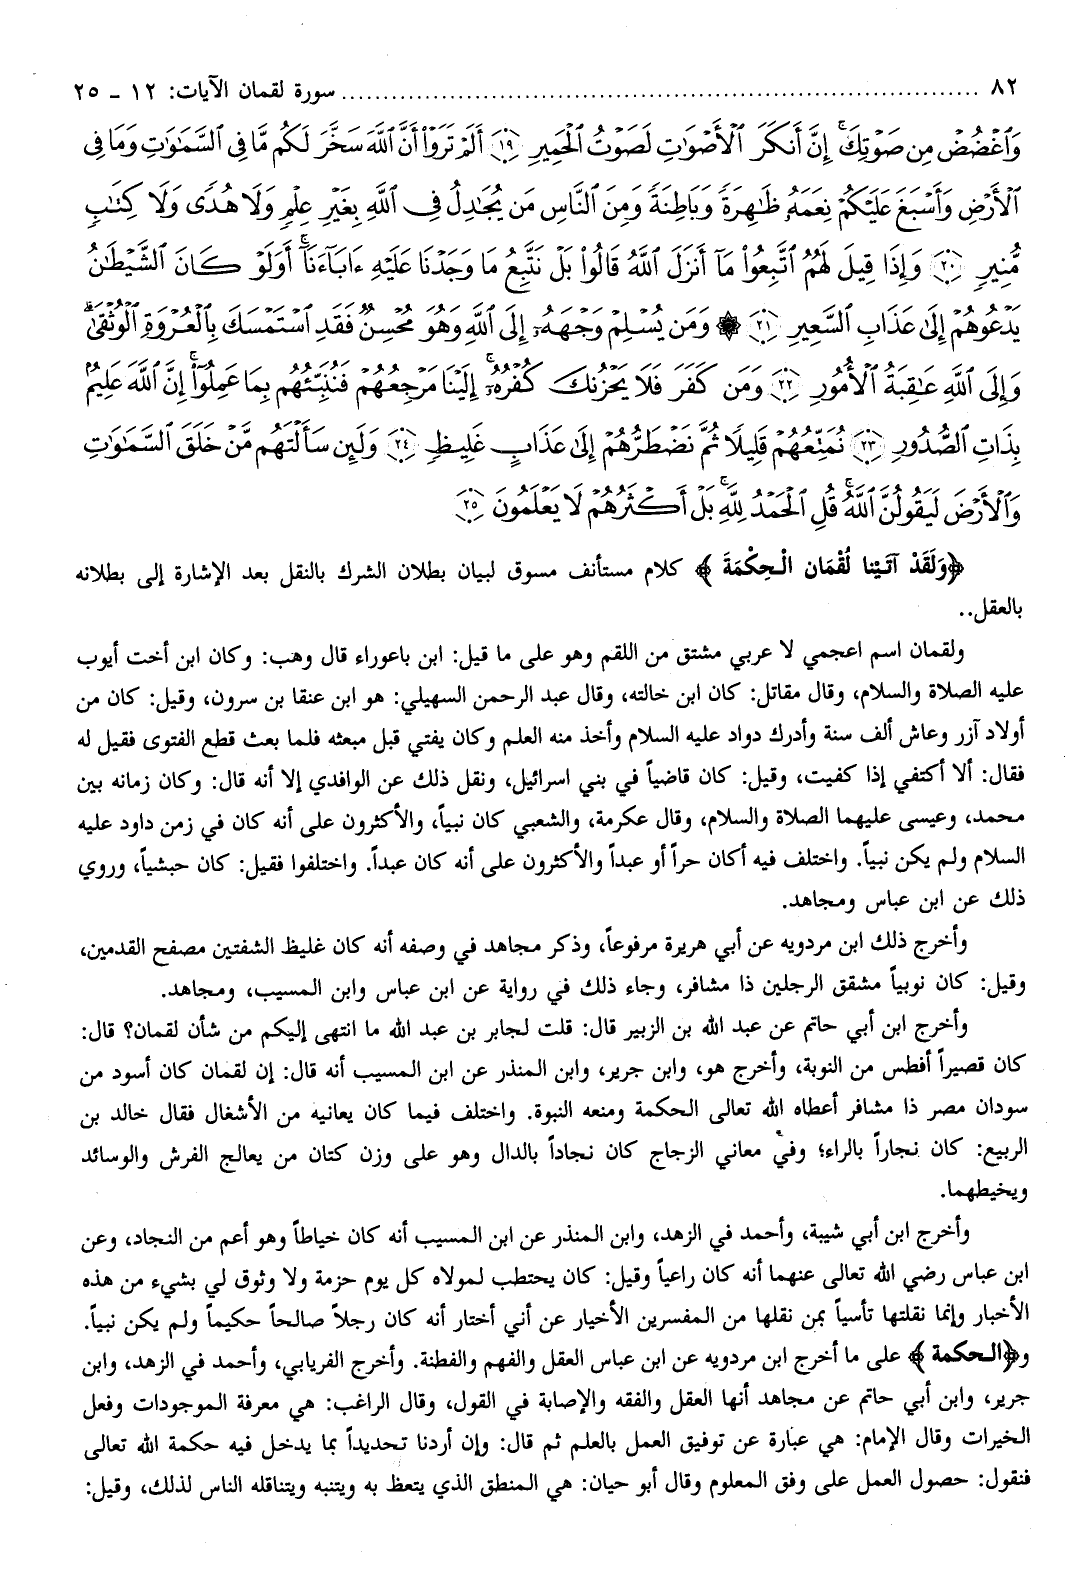 ٨٢ ........ سورة لقمان الآيات: ١٢ ـ ٢٥
وَٱغْضُضْ مِن صَوْتِكَ ۚ إِنَّ أَنكَرَ ٱلْأَصْوَٰتِ لَصَوْتُ ٱلْحَمِيرِ ١٩ أَلَمْ تَرَوْا۟ أَنَّ ٱللَّهَ سَخَّرَ لَكُم مَّا فِى ٱلسَّمَٰوَٰتِ وَمَا فِى
ٱلْأَرْضِ وَأَسْبَغَ عَلَيْكُمْ نِعَمَهُۥ ظَٰهِرَةً وَبَاطِنَةً وَمِنَ ٱلنَّاسِ مَن يُجَٰدِلُ فِى ٱللَّهِ بِغَيْرِ عِلْمٍ وَلَا هُدًى وَلَا كِتَٰبٍ
مُّنِيرٍ ٢٠ وَإِذَا قِيلَ لَهُمُ ٱتَّبِعُوا۟ مَآ أَنزَلَ ٱللَّهُ قَالُوا۟ بَلْ نَتَّبِعُ مَا وَجَدْنَا عَلَيْهِ ءَابَآءَنَآ ۚ أَوَلَوْ كَانَ ٱلشَّيْطَٰنُ
يَدْعُوهُمْ إِلَىٰ عَذَابِ ٱلسَّعِيرِ ٢١ ۞ وَمَن يُسْلِمْ وَجْهَهُۥٓ إِلَى ٱللَّهِ وَهُوَ مُحْسِنٌ فَقَدِ ٱسْتَمْسَكَ بِٱلْعُرْوَةِ ٱلْوُثْقَىٰ ۗ
وَإِلَى ٱللَّهِ عَٰقِبَةُ ٱلْأُمُورِ ٢٢ وَمَن كَفَرَ فَلَا يَحْزُنكَ كُفْرُهُۥٓ ۚ إِلَيْنَا مَرْجِعُهُمْ فَنُنَبِّئُهُم بِمَا عَمِلُوٓا۟ ۚ إِنَّ ٱللَّهَ عَلِيمٌۢ
بِذَاتِ ٱلصُّدُورِ ٢٣ نُمَتِّعُهُمْ قَلِيلًا ثُمَّ نَضْطَرُّهُمْ إِلَىٰ عَذَابٍ غَلِيظٍ ٢٤ وَلَئِن سَأَلْتَهُم مَّنْ خَلَقَ ٱلسَّمَٰوَٰتِ
وَٱلْأَرْضَ لَيَقُولُنَّ ٱللَّهُ ۚ قُلِ ٱلْحَمْدُ لِلَّهِ ۚ بَلْ أَكْثَرُهُمْ لَا يَعْلَمُونَ ٢٥
﴿وَلَقَدْ آتَيْنا لُقْمَان الْحِكْمَةَ﴾ كلام مستأنف مسوق لبيان بطلان الشرك بالنقل بعد الإشارة إلى بطلانه
بالعقل..
ولقمان اسم اعجمي لا عربي مشتق من اللقم وهو على ما قيل: ابن باعوراء قال وهب: وكان ابن أخت أيوب
عليه الصلاة والسلام، وقال مقاتل: كان ابن خالته، وقال عبد الرحمن السهيلي: هو ابن عنقا بن سرون، وقيل: كان من
أولاد آزر وعاش ألف سنة وأدرك دواد عليه السلام وأخذ منه العلم وكان يفتي قبل مبعثه فلما بعث قطع الفتوى فقيل له
فقال: ألا أكتفي إذا كفيت، وقيل: كان قاضياً في بني اسرائيل، ونقل ذلك عن الوافدي إلا أنه قال: وكان زمانه بين
محمد، وعيسى عليهما الصلاة والسلام، وقال عكرمة، والشعبي كان نبياً، والأكثرون على أنه كان في زمن داود عليه
السلام ولم يكن نبياً. واختلف فيه أكان حراً أو عبداً والأكثرون على أنه كان عبداً. واختلفوا فقيل: كان حبشياً، وروي
ذلك عن ابن عباس ومجاهد.
وأخرج ذلك ابن مردويه عن أبي هريرة مرفوعاً، وذكر مجاهد في وصفه أنه كان غليظ الشفتين مصفح القدمين،
وقيل: كان نوبياً مشقق الرجلين ذا مشافر، وجاء ذلك في رواية عن ابن عباس وابن المسيب، ومجاهد.
وأخرج ابن أبي حاتم عن عبد الله بن الزبير قال: قلت لجابر بن عبد الله ما انتهى إليكم من شأن لقمان؟ قال:
كان قصيراً أفطس من النوبة، وأخرج هو، وابن جرير، وابن المنذر عن ابن المسيب أنه قال: إن لقمان كان أسود من
سودان مصر ذا مشافر أعطاه الله تعالى الحكمة ومنعه النبوة. واختلف فيما كان يعانيه من الأشغال فقال خالد بن
الربيع: كان نجاراً بالراء؛ وفي معاني الزجاج كان نجاداً بالدال وهو على وزن كتان من يعالج الفرش والوسائد
ويخيطهما.
وأخرج ابن أبي شيبة، وأحمد في الزهد، وابن المنذر عن ابن المسيب أنه كان خياطاً وهو أعم من النجاد، وعن
ابن عباس رضي الله تعالى عنهما أنه كان راعياً وقيل: كان يحتطب لمولاه كل يوم حزمة ولا وثوق لي بشيء من هذه
الأخبار وإنما نقلتها تأسياً بمن نقلها من المفسرين الأخيار عن أني أختار أنه كان رجلاً صالحاً حكيماً ولم يكن نبياً.
و﴿الحكمة﴾ على ما أخرج ابن مردويه عن ابن عباس العقل والفهم والفطنة. وأخرج الفريابي، وأحمد في الزهد، وابن
جرير، وابن أبي حاتم عن مجاهد أنها العقل والفقه والإصابة في القول، وقال الراغب: هي معرفة الموجودات وفعل
الخيرات وقال الإمام: هي عبارة عن توفيق العمل بالعلم ثم قال: وإن أردنا تحديداً بما يدخل فيه حكمة الله تعالى
فنقول: حصول العمل على وفق المعلوم وقال أبو حيان: هي المنطق الذي يتعظ به ويتنبه ويتناقله الناس لذلك، وقيل: